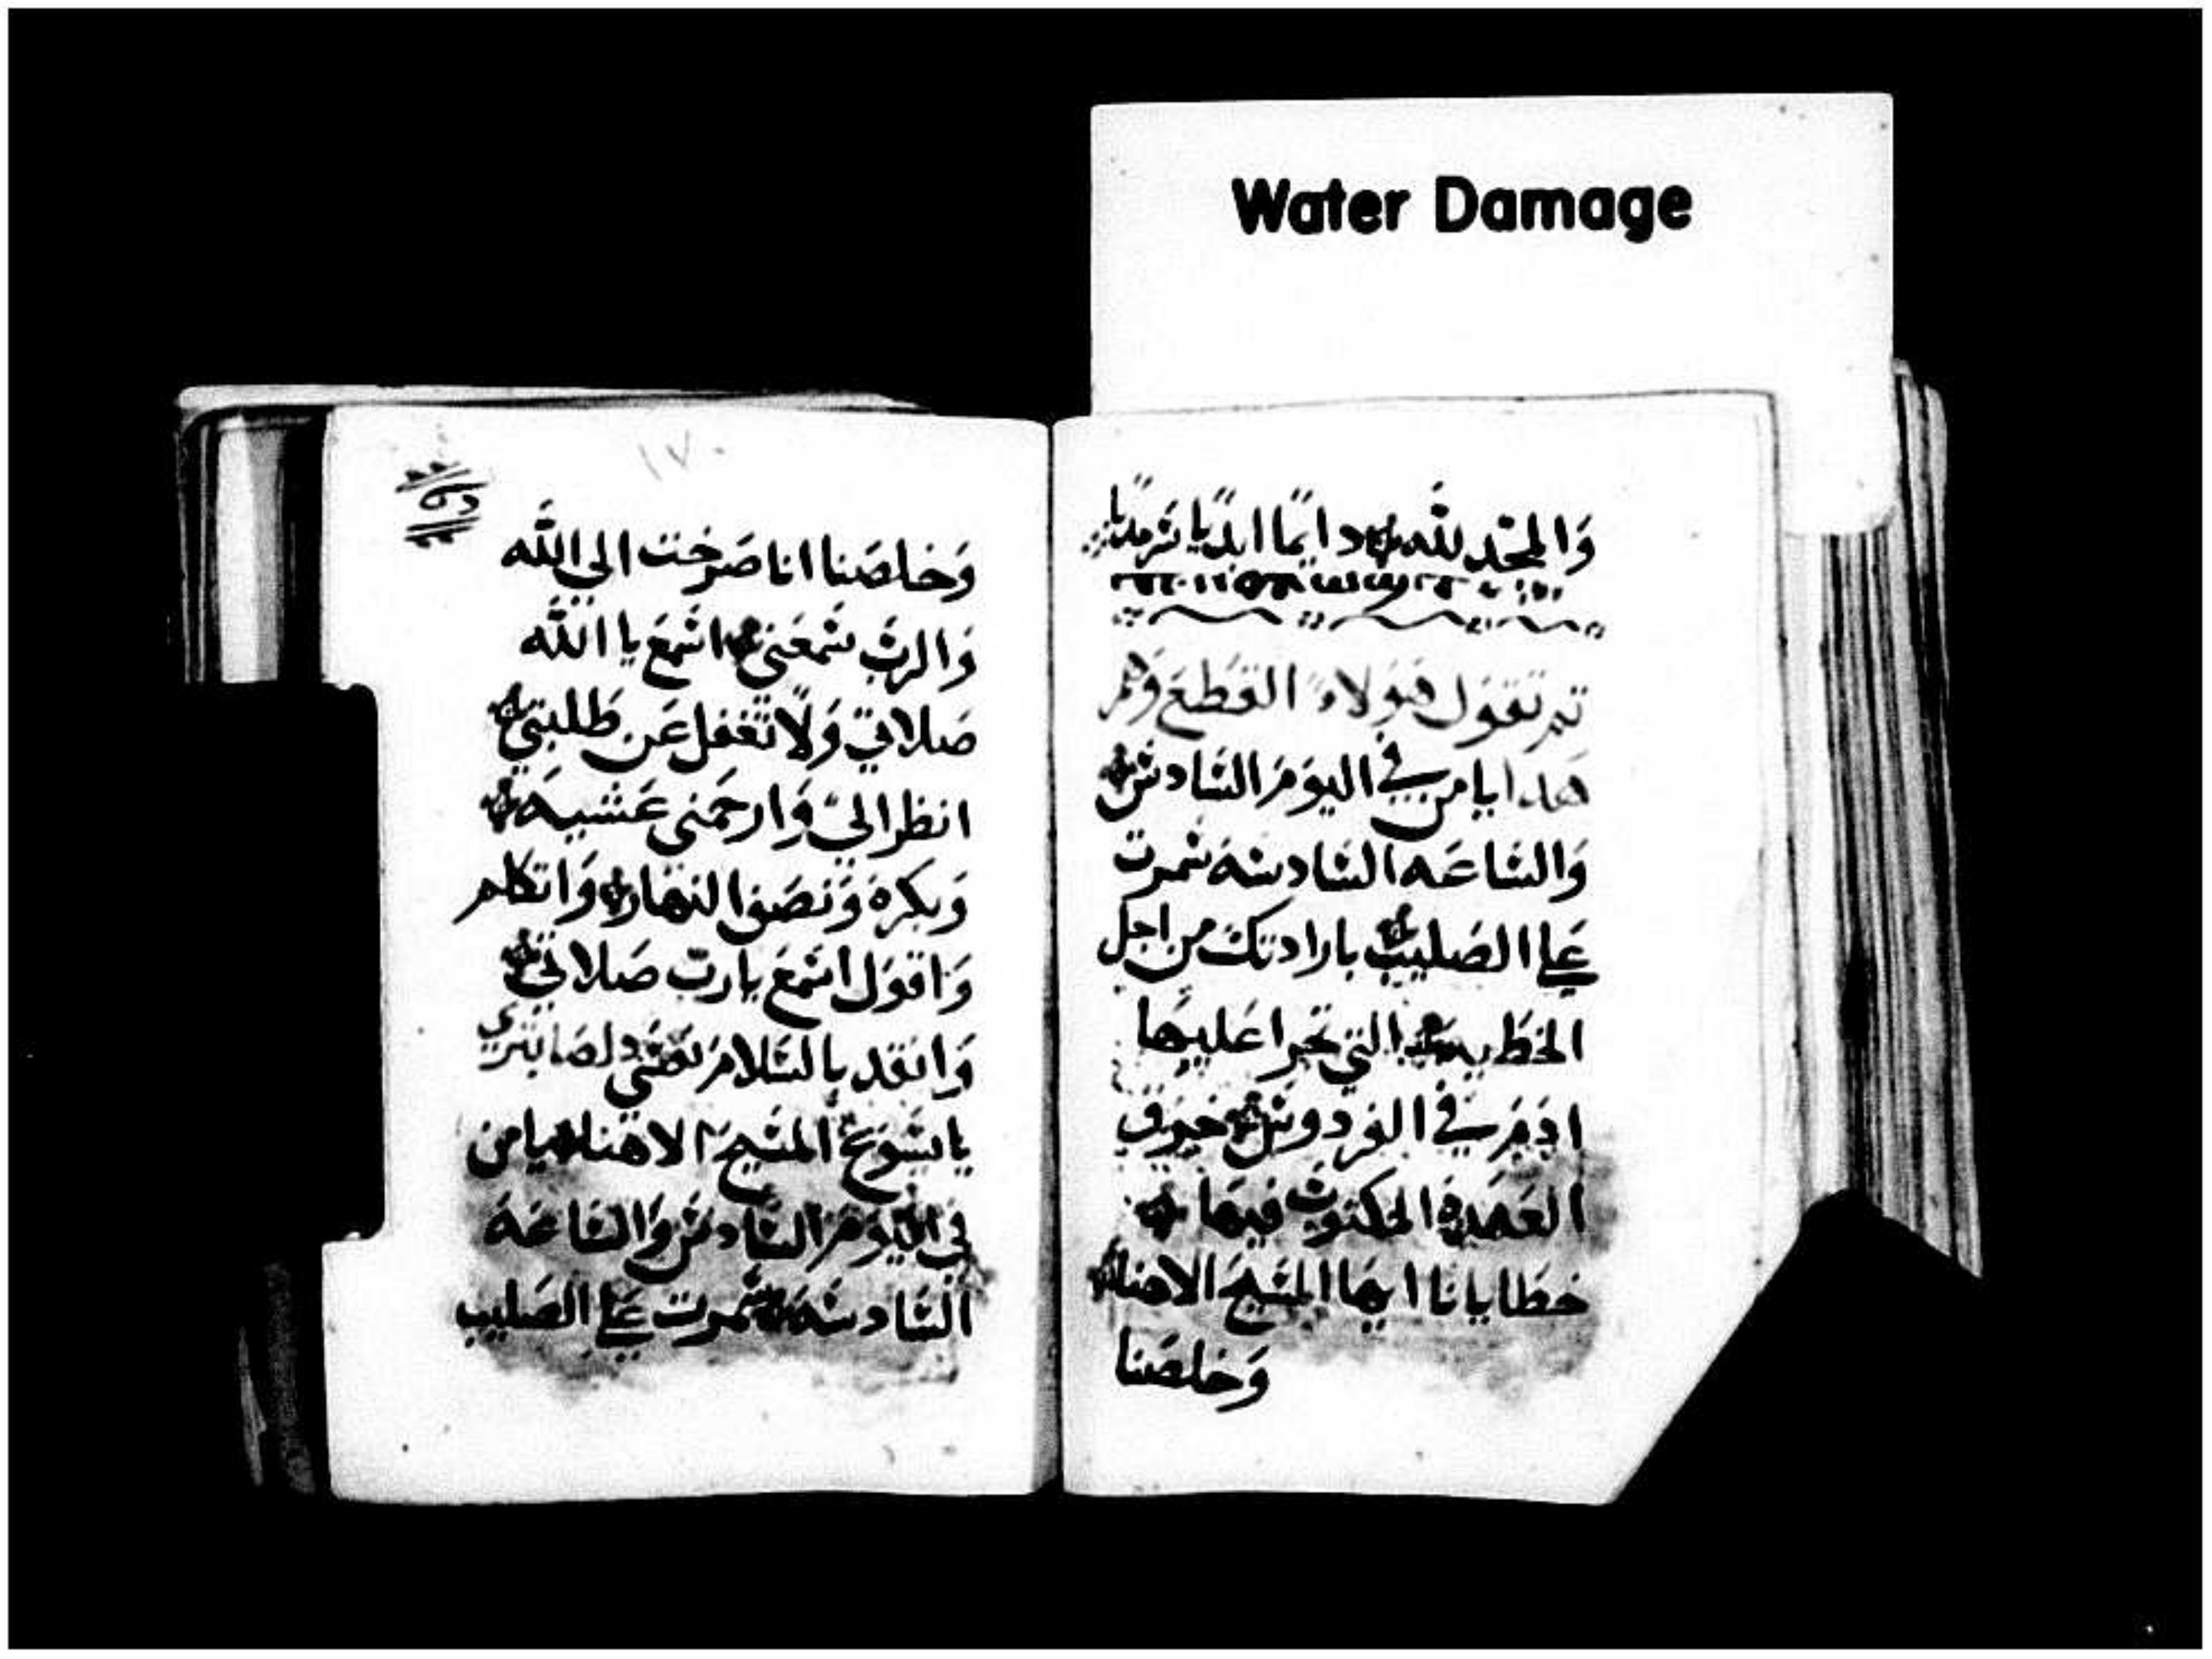 Water Damage
وَالمجْد لله دايمًا ابديًا سَرمديًا
تم تقول هَولاء القطَع وَهم
هَدا يامن في اليوَم السَادس
وَالسَاعَه السَادسَه سمرت
عَلي الصَليب بارادتك من اجل
الخطَيه التي تجرا عَليهَا
ادمَ في الفردوس خرق
العَهدة المكتوب فيهَا
خطَايانا ايهَا المسَيح الاهنا
وَخلصَنا
١٧٠
وَخلصَنا انا صَرخت الي الله
وَالرب سَمعَني اسمَع يا الله
صَلاتي وَلا تغفل عَن طَلبتي
انظر اليّ وَارحَمني عَشيه
وَبكرة وَنصَف النهار وَاتكلم
وَاقوَل اسمَع يارب صَلاتي
وَانقد بالسَلامَ نفسَي
ياسَوع المسَيح الاهنا يامن
في اليوَم السَادس وَالسَاعَه
السَادسَه سمرت عَلي الصَليب